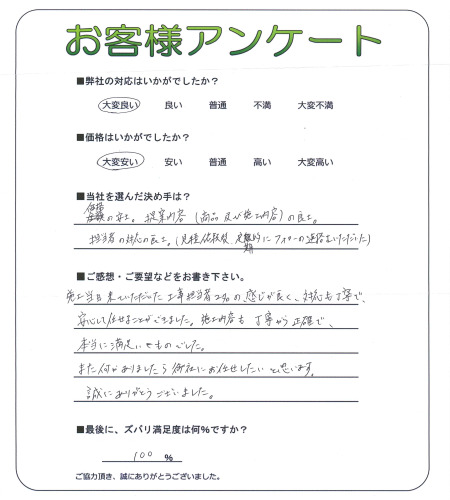 お客様アンケート
■弊社の対応はいかがでしたか？
大変良い 良い 普通 不満 大変不満
■価格はいかがでしたか？
大変安い 安い 普通 高い 大変高い
■当社を選んだ決め手は？
価格の安さ。提案内容（商品及び施工内容）の良さ。
担当者の対応の良さ。（見積依頼後、定期的にフォローの連絡をいただいた）
■ご感想・ご要望などをお書き下さい。
施工当日来ていただいた工事担当者2名の感じが良く、対応も丁寧で、
安心して任せることができました。施工内容も丁寧かつ正確で、
本当に満足いくものでした。
また何かありましたら御社にお任せしたいと思います。
誠にありがとうございました。
■最後に、ズバリ満足度は何％ですか？
100 ％
ご協力頂き、誠にありがとうございました。